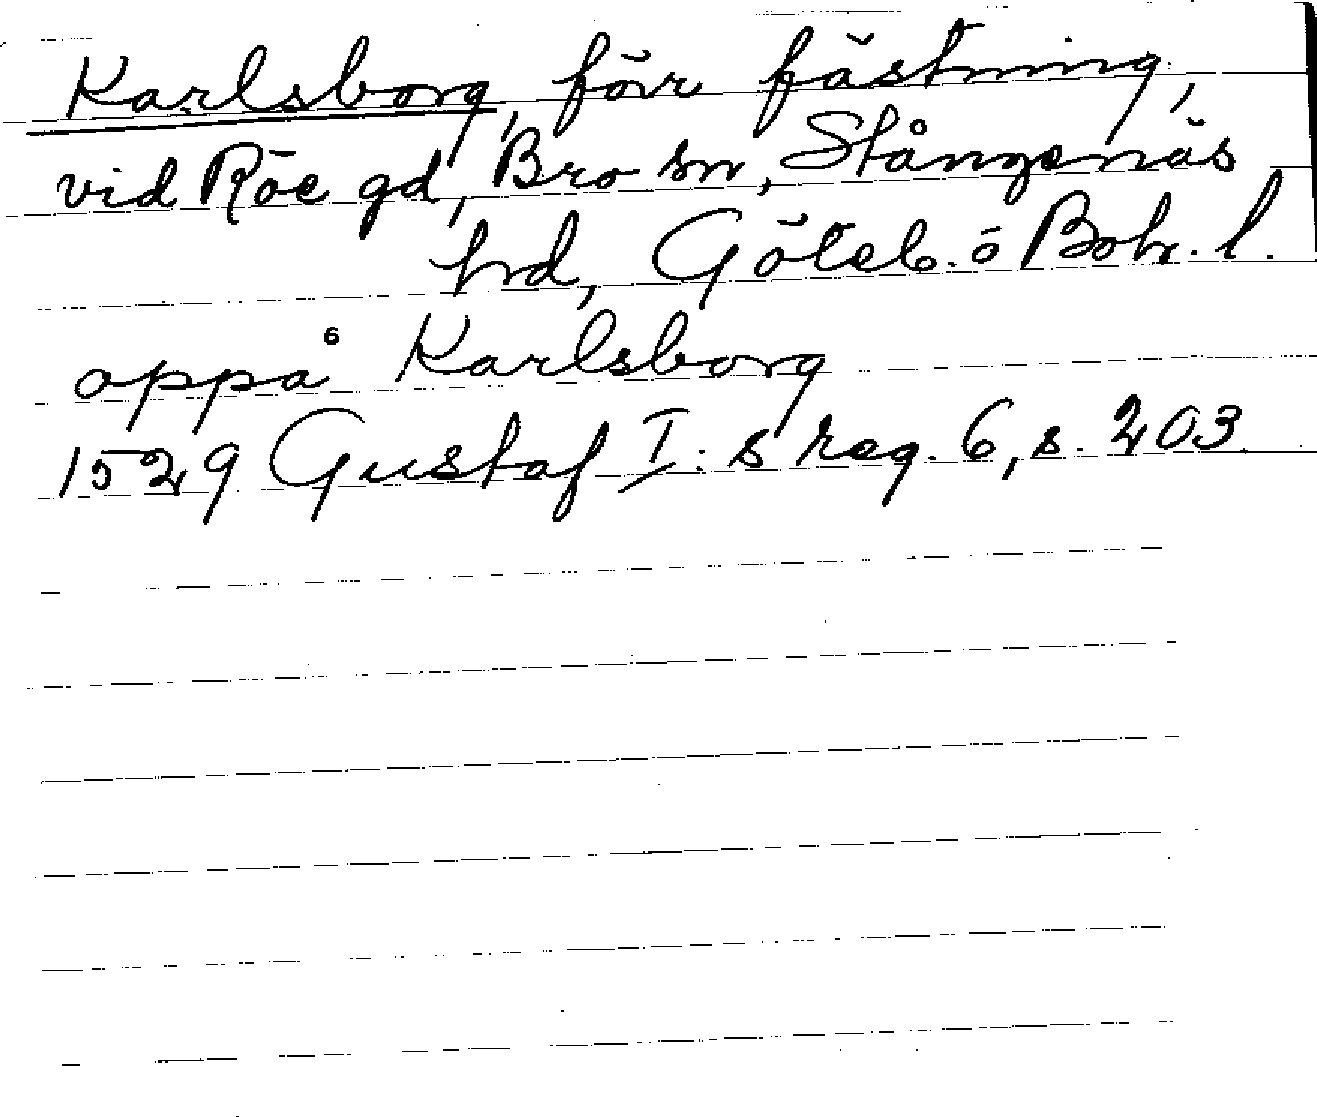 Karlsborg, förr fästning,
vid Röe gd, Bro sn, Stångenäs
hd, Göteb. o Boh. l.
oppå Karlsborg
1529 Gustaf I:s reg. 6, s. 203